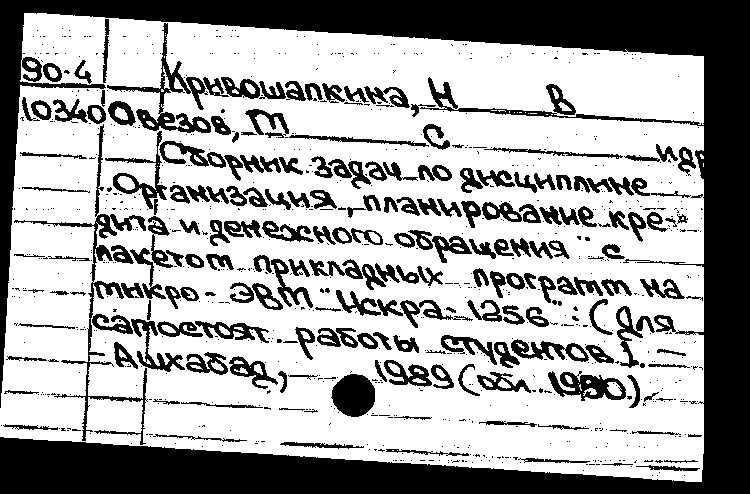 90-4 Кривошапкина, Н В
10340 Овезов, М С и др
Сборник задач по дисциплине
"Организация, планирование кре-
дита и денежного обращения" с
пакетом прикладных программ на
микро-ЭВМ "Искра-1256": (Для
самостоят. работы студентов). —
- Ашхабад, 1989 (обл. 1990).